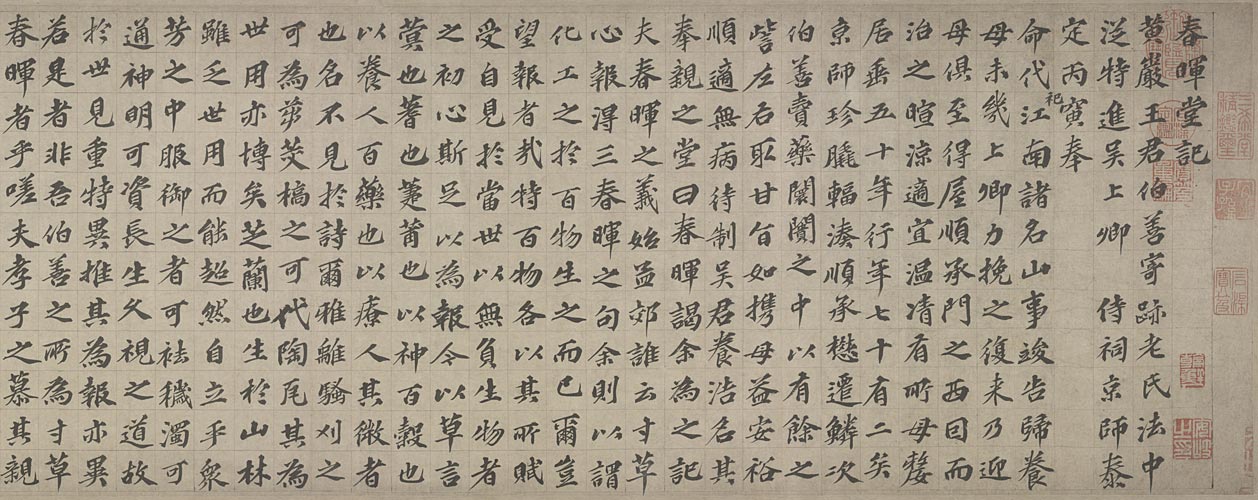 春暉堂記
黃巖王君伯善寄跡老氏法中
從特進吳上卿 侍祠京師泰
定丙寅奉
命代祀江南諸名山事竣告歸養
母未幾上卿力挽之復来乃迎
母俱至得屋順承門之西因而
治之暄涼適宜温凊有所母嫠
居垂五十年行年七十有二矣
京師珍輻湊順承懋遷鱗次
伯善賣藥闤闠之中以有餘之
訾左右取甘旨如携母益安裕
順適無病待制吳君養浩名其
奉親之堂曰春暉謁余為之記
夫春暉之義始孟郊誰云寸草
心報得三春暉之句余則以謂
化工之於百物生之而已爾豈
望報者㢤特百物各以其所賦
受自見於當世以無負生物者
之初心斯足以為報今以草言
蓂也蓍也萐莆也以神百穀也
以養人百藥也以療人其微者
也名不見於詩爾雅離騷刈之
可為芻茭槁之可代陶瓦其為
世用亦博矣芝蘭也生於山林
雖乏世用而能超然自立乎衆
芳之中服御之者可祛穢濁可
通神明可資長生久視之道故
於世見重特異推其為報亦異
若是者非吾伯善之所為寸草
春暉者乎嗟夫孝子之慕其親